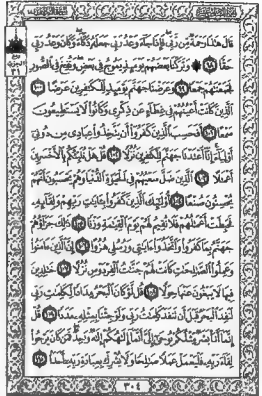 قَالَ هَٰذَا رَحْمَةٌ مِّن رَّبِّي فَإِذَا جَآءَ وَعْدُ رَبِّي جَعَلَهُۥ دَكَّآءَ وَكَانَ وَعْدُ رَبِّي
حَقًّا ٩٨ وَتَرَكْنَا بَعْضَهُمْ يَوْمَئِذٍ يَمُوجُ فِي بَعْضٍ وَنُفِخَ فِي ٱلصُّورِ
فَجَمَعْنَٰهُمْ جَمْعًا ٩٩ وَعَرَضْنَا جَهَنَّمَ يَوْمَئِذٍ لِّلْكَٰفِرِينَ عَرْضًا ١٠٠
ٱلَّذِينَ كَانَتْ أَعْيُنُهُمْ فِي غِطَآءٍ عَن ذِكْرِي وَكَانُوا۟ لَا يَسْتَطِيعُونَ
سَمْعًا ١٠١ أَفَحَسِبَ ٱلَّذِينَ كَفَرُوٓا۟ أَن يَتَّخِذُوا۟ عِبَادِي مِن دُونِيٓ
أَوْلِيَآءَ إِنَّآ أَعْتَدْنَا جَهَنَّمَ لِلْكَٰفِرِينَ نُزُلًا ١٠٢ قُلْ هَلْ نُنَبِّئُكُم بِٱلْأَخْسَرِينَ
أَعْمَٰلًا ١٠٣ ٱلَّذِينَ ضَلَّ سَعْيُهُمْ فِي ٱلْحَيَوٰةِ ٱلدُّنْيَا وَهُمْ يَحْسَبُونَ أَنَّهُمْ
يُحْسِنُونَ صُنْعًا ١٠٤ أُو۟لَٰٓئِكَ ٱلَّذِينَ كَفَرُوا۟ بِـَٔايَٰتِ رَبِّهِمْ وَلِقَآئِهِۦ
فَحَبِطَتْ أَعْمَٰلُهُمْ فَلَا نُقِيمُ لَهُمْ يَوْمَ ٱلْقِيَٰمَةِ وَزْنًا ١٠٥ ذَٰلِكَ جَزَآؤُهُمْ
جَهَنَّمُ بِمَا كَفَرُوا۟ وَٱتَّخَذُوٓا۟ ءَايَٰتِي وَرُسُلِي هُزُوًا ١٠٦ إِنَّ ٱلَّذِينَ ءَامَنُوا۟
وَعَمِلُوا۟ ٱلصَّٰلِحَٰتِ كَانَتْ لَهُمْ جَنَّٰتُ ٱلْفِرْدَوْسِ نُزُلًا ١٠٧ خَٰلِدِينَ
فِيهَا لَا يَبْغُونَ عَنْهَا حِوَلًا ١٠٨ قُل لَّوْ كَانَ ٱلْبَحْرُ مِدَادًا لِّكَلِمَٰتِ رَبِّي
لَنَفِدَ ٱلْبَحْرُ قَبْلَ أَن تَنفَدَ كَلِمَٰتُ رَبِّي وَلَوْ جِئْنَا بِمِثْلِهِۦ مَدَدًا ١٠٩ قُلْ
إِنَّمَآ أَنَا۠ بَشَرٌ مِّثْلُكُمْ يُوحَىٰٓ إِلَيَّ أَنَّمَآ إِلَٰهُكُمْ إِلَٰهٌ وَٰحِدٌ فَمَن كَانَ يَرْجُوا۟
لِقَآءَ رَبِّهِۦ فَلْيَعْمَلْ عَمَلًا صَٰلِحًا وَلَا يُشْرِكْ بِعِبَادَةِ رَبِّهِۦٓ أَحَدًا ١١٠
٣٠٤